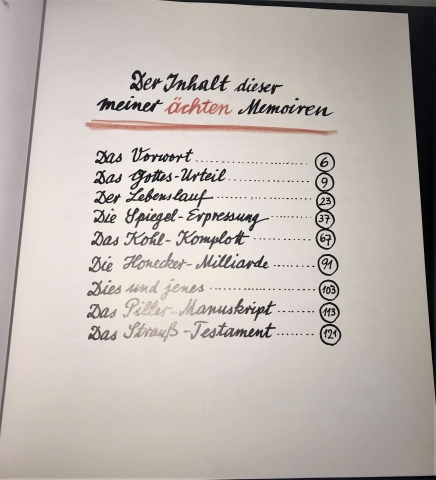 Der Inhalt dieser
meiner ächten Memoiren
Das Vorwort 6
Das Gottes-Urteil 9
Der Lebenslauf 23
Die Spiegel-Erpressung 37
Das Kohl-Komplott 67
Die Honecker-Milliarde 91
Dies und jenes 103
Das Piller-Manuskript 113
Das Strauß-Testament 121